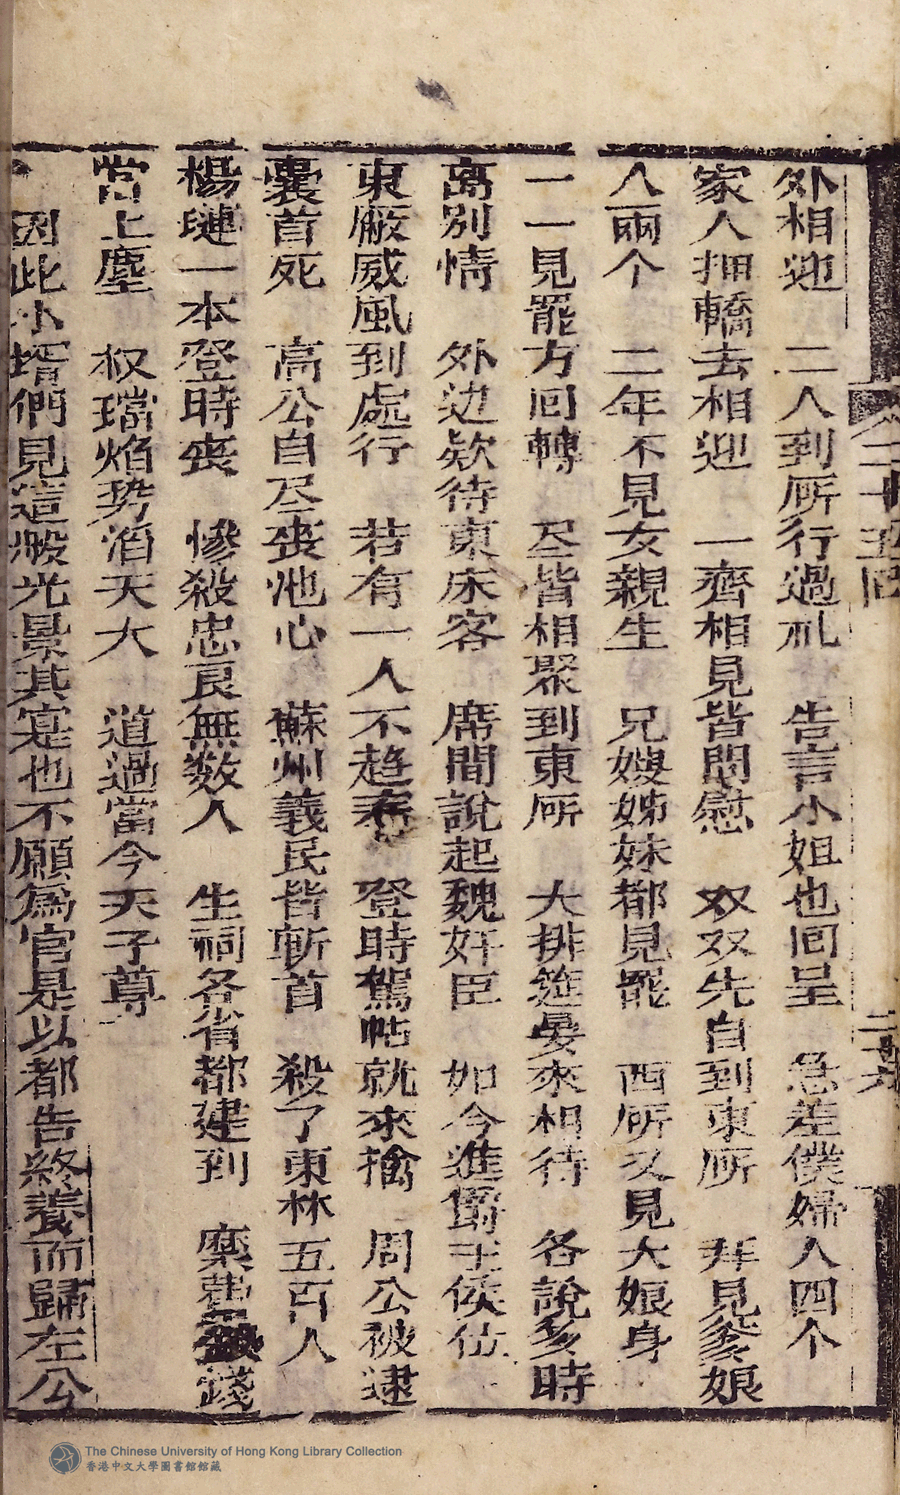 二十五回
二十六
外相迎　二人到所行過礼　告言小姐也回呈　急差僕婦人四个
家人押轎去相迎　一齊相見皆問慰　双双先自到東所　拜見爹娘
人兩个　二年不見女親生　兄嫂姊妹都見罷　西所又見大娘身
一一見罷方回轉　尽皆相聚到東所　大排筵宴來相待　各說多時
离別情　外边欵待東床客　席間說起魏奸臣　如今進爵王侯位
東廠威風到處行　若有一人不趋奉　登時駕帖就來擒　周公被逮
囊首死　高公自尽喪池心　蘇州義民皆斬首　殺了東林五百人
楊璉一本登時喪　慘殺忠良無数人　生祠各省都建到　糜費錢
當上塵　权璫焰势滔天大　道過當今天子尊
因此小壻們見這般光景其寔也不願為官是以都告終養而歸左公
The Chinese University of Hong Kong Library Collection
香港中文大學圖書館館藏